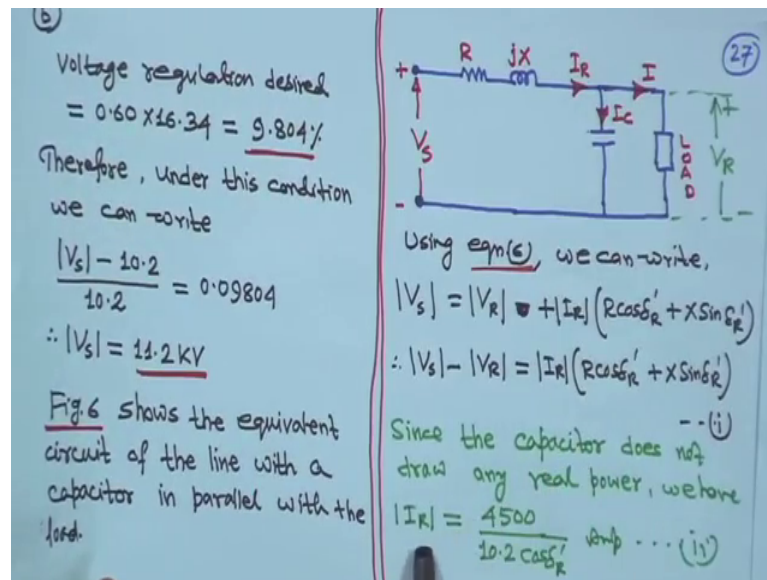 (b)
Voltage regulation desired
= 0.60 × 16.34 = 9.804%
Therefore, under this condition
we can write
|Vs| - 10.2 / 10.2 = 0.09804
∴ |Vs| = 11.2 kV
Fig.6 shows the equivalent
circuit of the line with a
capacitor in parallel with the
load.
27
+ R jX I_R I
I_C
Vs
LOAD
+
V_R
-
Using eqn(6), we can write,
|Vs| = |V_R| + |I_R| (R cosδ_R' + X sinδ_R')
∴ |Vs| - |V_R| = |I_R| (R cosδ_R' + X sinδ_R')
--(i)
Since the capacitor does not
draw any real power, we have
|I_R| = 4500 / 10.2 cosδ_R' Amp ...(ii)